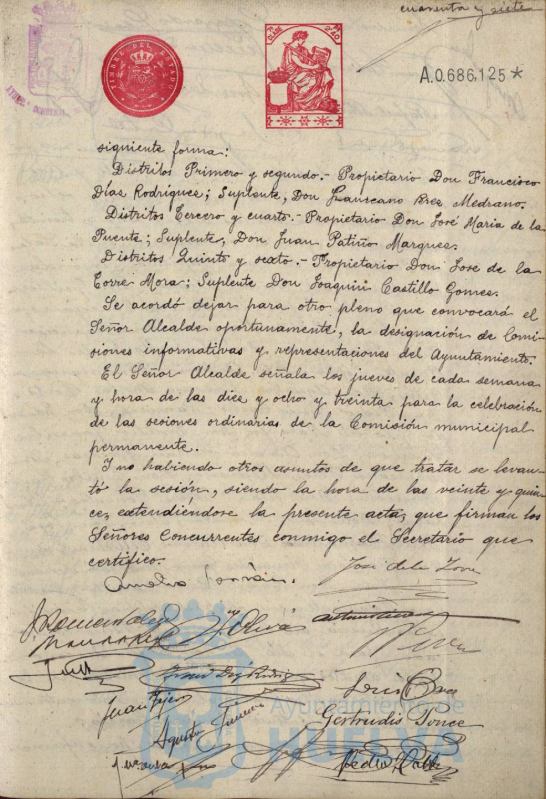 cuarenta y siete
TIMBRE DEL ESTADO
A.0.686.125*
siguiente forma:
Distritos Primero y segundo.- Propietario Don Francisco
Días Rodriguez; Suplente, Don Bres Medrano.
Distritos Tercero y cuarto.- Propietario Don José Maria de la
Puente; Suplente, Don Juan Patiño Marques.
Distritos Quinto y sexto.- Propietario Don Jose de la
Torre Mora; Suplente Don Joaquin Castillo Gomes.
Se acordó dejar para otro pleno que convocará el
Señor Alcalde oportunamente, la designación de Comi-
siones informativas y representaciones del Ayuntamiento.
El Señor Alcalde señala los jueves de cada semana
y hora de las diez y ocho y treinta para la celebración
de las sesiones ordinarias de la Comisión municipal
permanente.
Y no habiendo otros asuntos de que tratar se levan-
tó la sesión, siendo la hora de las veinte y quin-
ce, extendiéndose la presente acta, que firman los
Señores Concurrentes conmigo el Secretario que
certifico.
José de la Torre
J. Oliva
Luis Bres
Gertrudis Ponce
Pedro
Ayuntamiento de
HUELVA